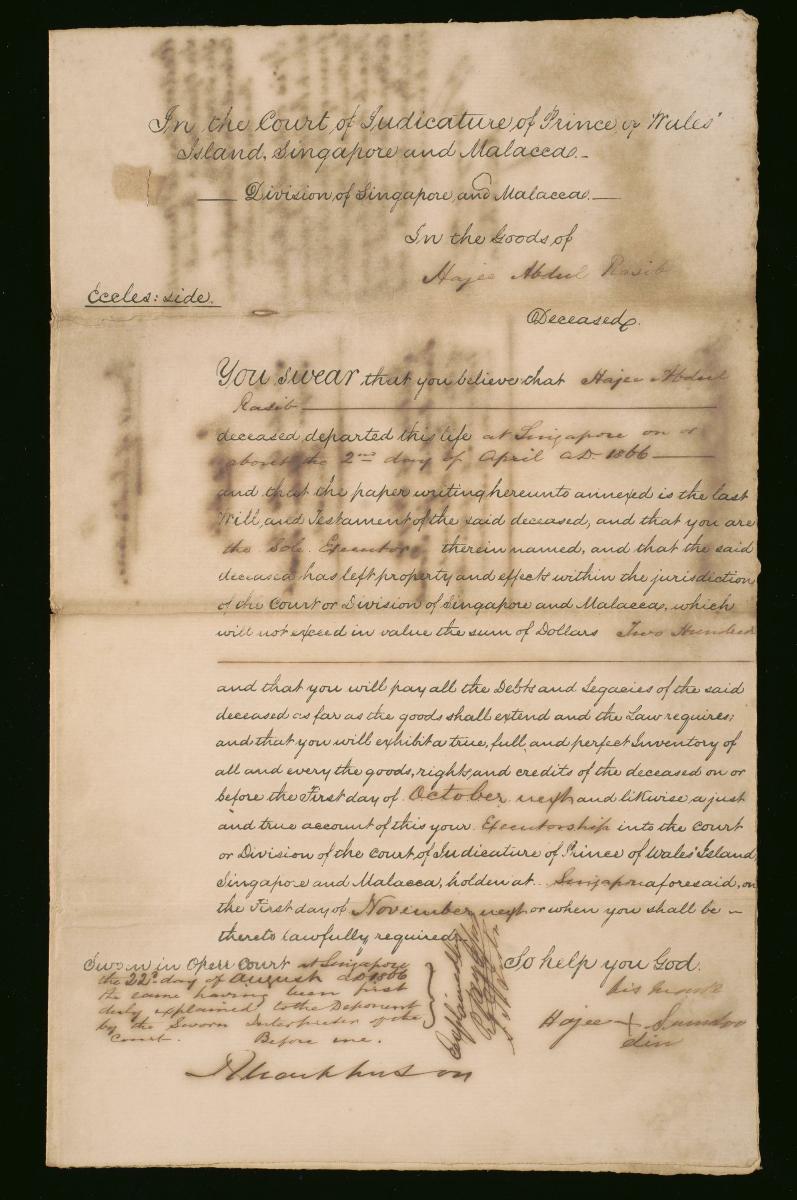 In the Court of Judicature of Prince of Wales'
Island, Singapore and Malacca.
Division of Singapore and Malacca.
In the Goods of
Hajee Abdul Rasib
Eccles: side.
Deceased.
You swear that you believe that Hajee Abdul
Rasib
deceased departed this life at Singapore on or
about the 2nd day of April AD 1866
and that the paper writing hereunto annexed is the last
Will and Testament of the said deceased, and that you are
the Sole Executor therein named, and that the said
deceased has left property and effects within the jurisdiction
of the Court or Division of Singapore and Malacca, which
will not exceed in value the sum of Dollars Two Hundred
and that you will pay all the Debts and Legacies of the said
deceased as far as the goods shall extend and the Law requires;
and that you will exhibit a true, full, and perfect Inventory of
all and every the goods, rights, and credits of the deceased on or
before the First day of October next and likewise a just
and true account of this your Executorship into the Court
or Division of the Court of Judicature of Prince of Wales' Island,
Singapore and Malacca, holden at Singapore aforesaid, on
the First day of November next or when you shall be
thereto lawfully required.
So help you God.
Sworn in Open Court at Singapore
the 22d. day of August AD 1866
the same having been first
duly explained to the Deponent
by the Sworn Interpreter of the
Court. Before me.
Explained by
his mark
Hajee +
din